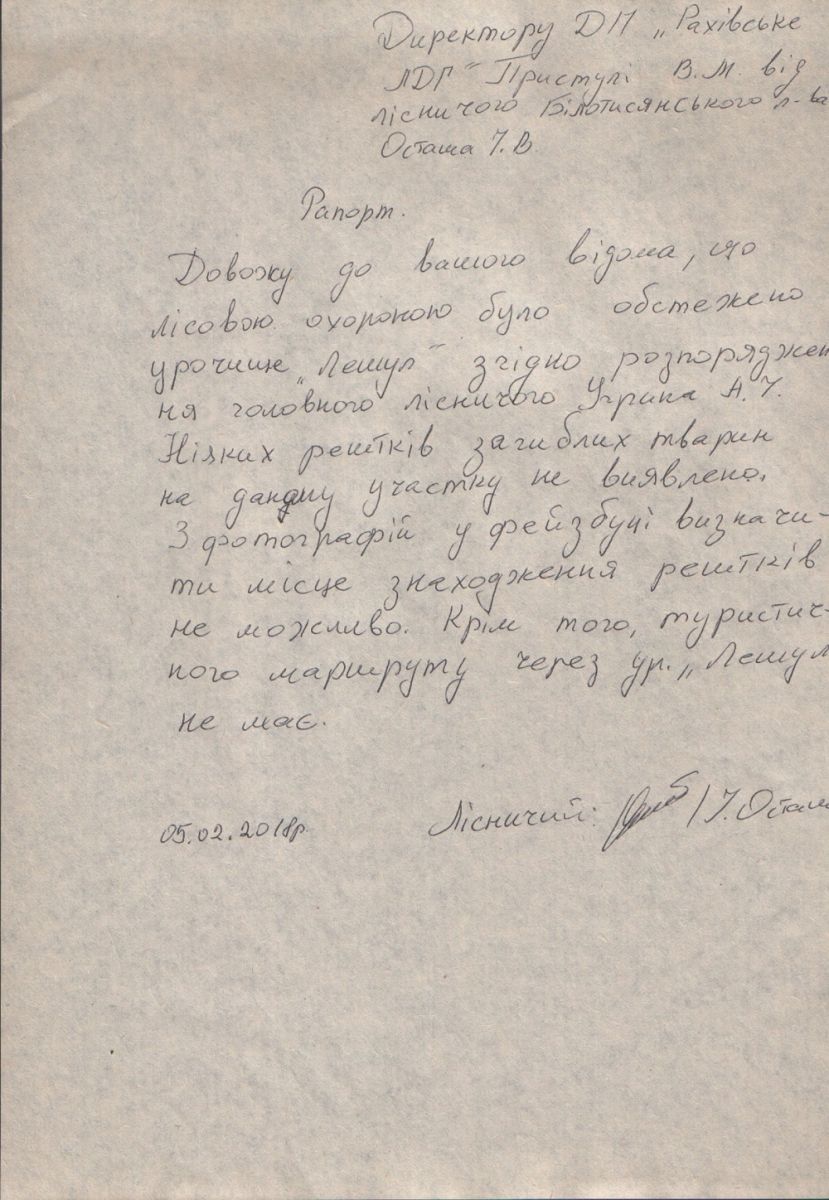 Директору ДП „Рахівське
ЛДГ" Приступі В.М. від
лісничого Білотисянського л-ва
Осташа І.В.
Рапорт.
Довожу до вашого відома, що
лісовою охороною було обстежено
урочище „Лешул" згідно розпоряджен
ня головного лісничого Угрина А.І.
Ніяких решtків загиблих тварин
на дану участку не виявлено.
З фотографій у фейзбуці визначи-
ти місце знаходження решtків
не можливо. Крім того, туристич-
ного маршруту через ур. „Лешул
не має.
05.02.2018р. Лісничий: /І. Осташ